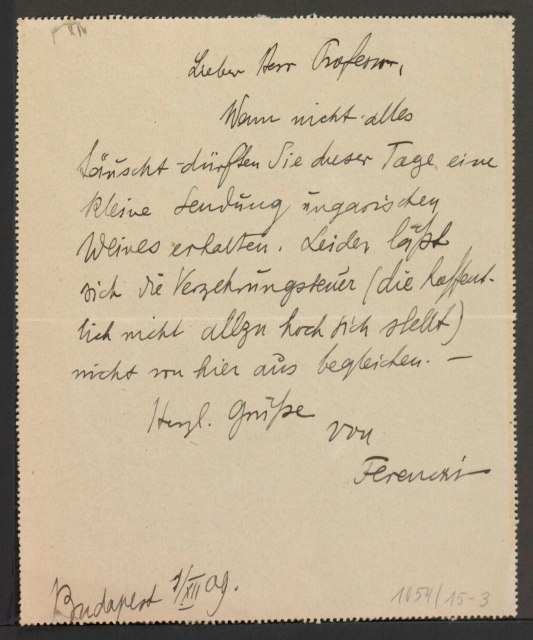 Lieber Herr Professor,
Wenn nicht alles
täuscht - dürften Sie dieser Tage eine
kleine Sendung ungarischen
Weines erhalten. Leider läßt
sich die Verzehrungsteuer (die hoffent-
lich nicht allzu hoch sich stellt)
nicht von hier aus begleichen. —
Herzl. Grüße
von
Ferenczi
Budapest /XII 09.
1054/15-3